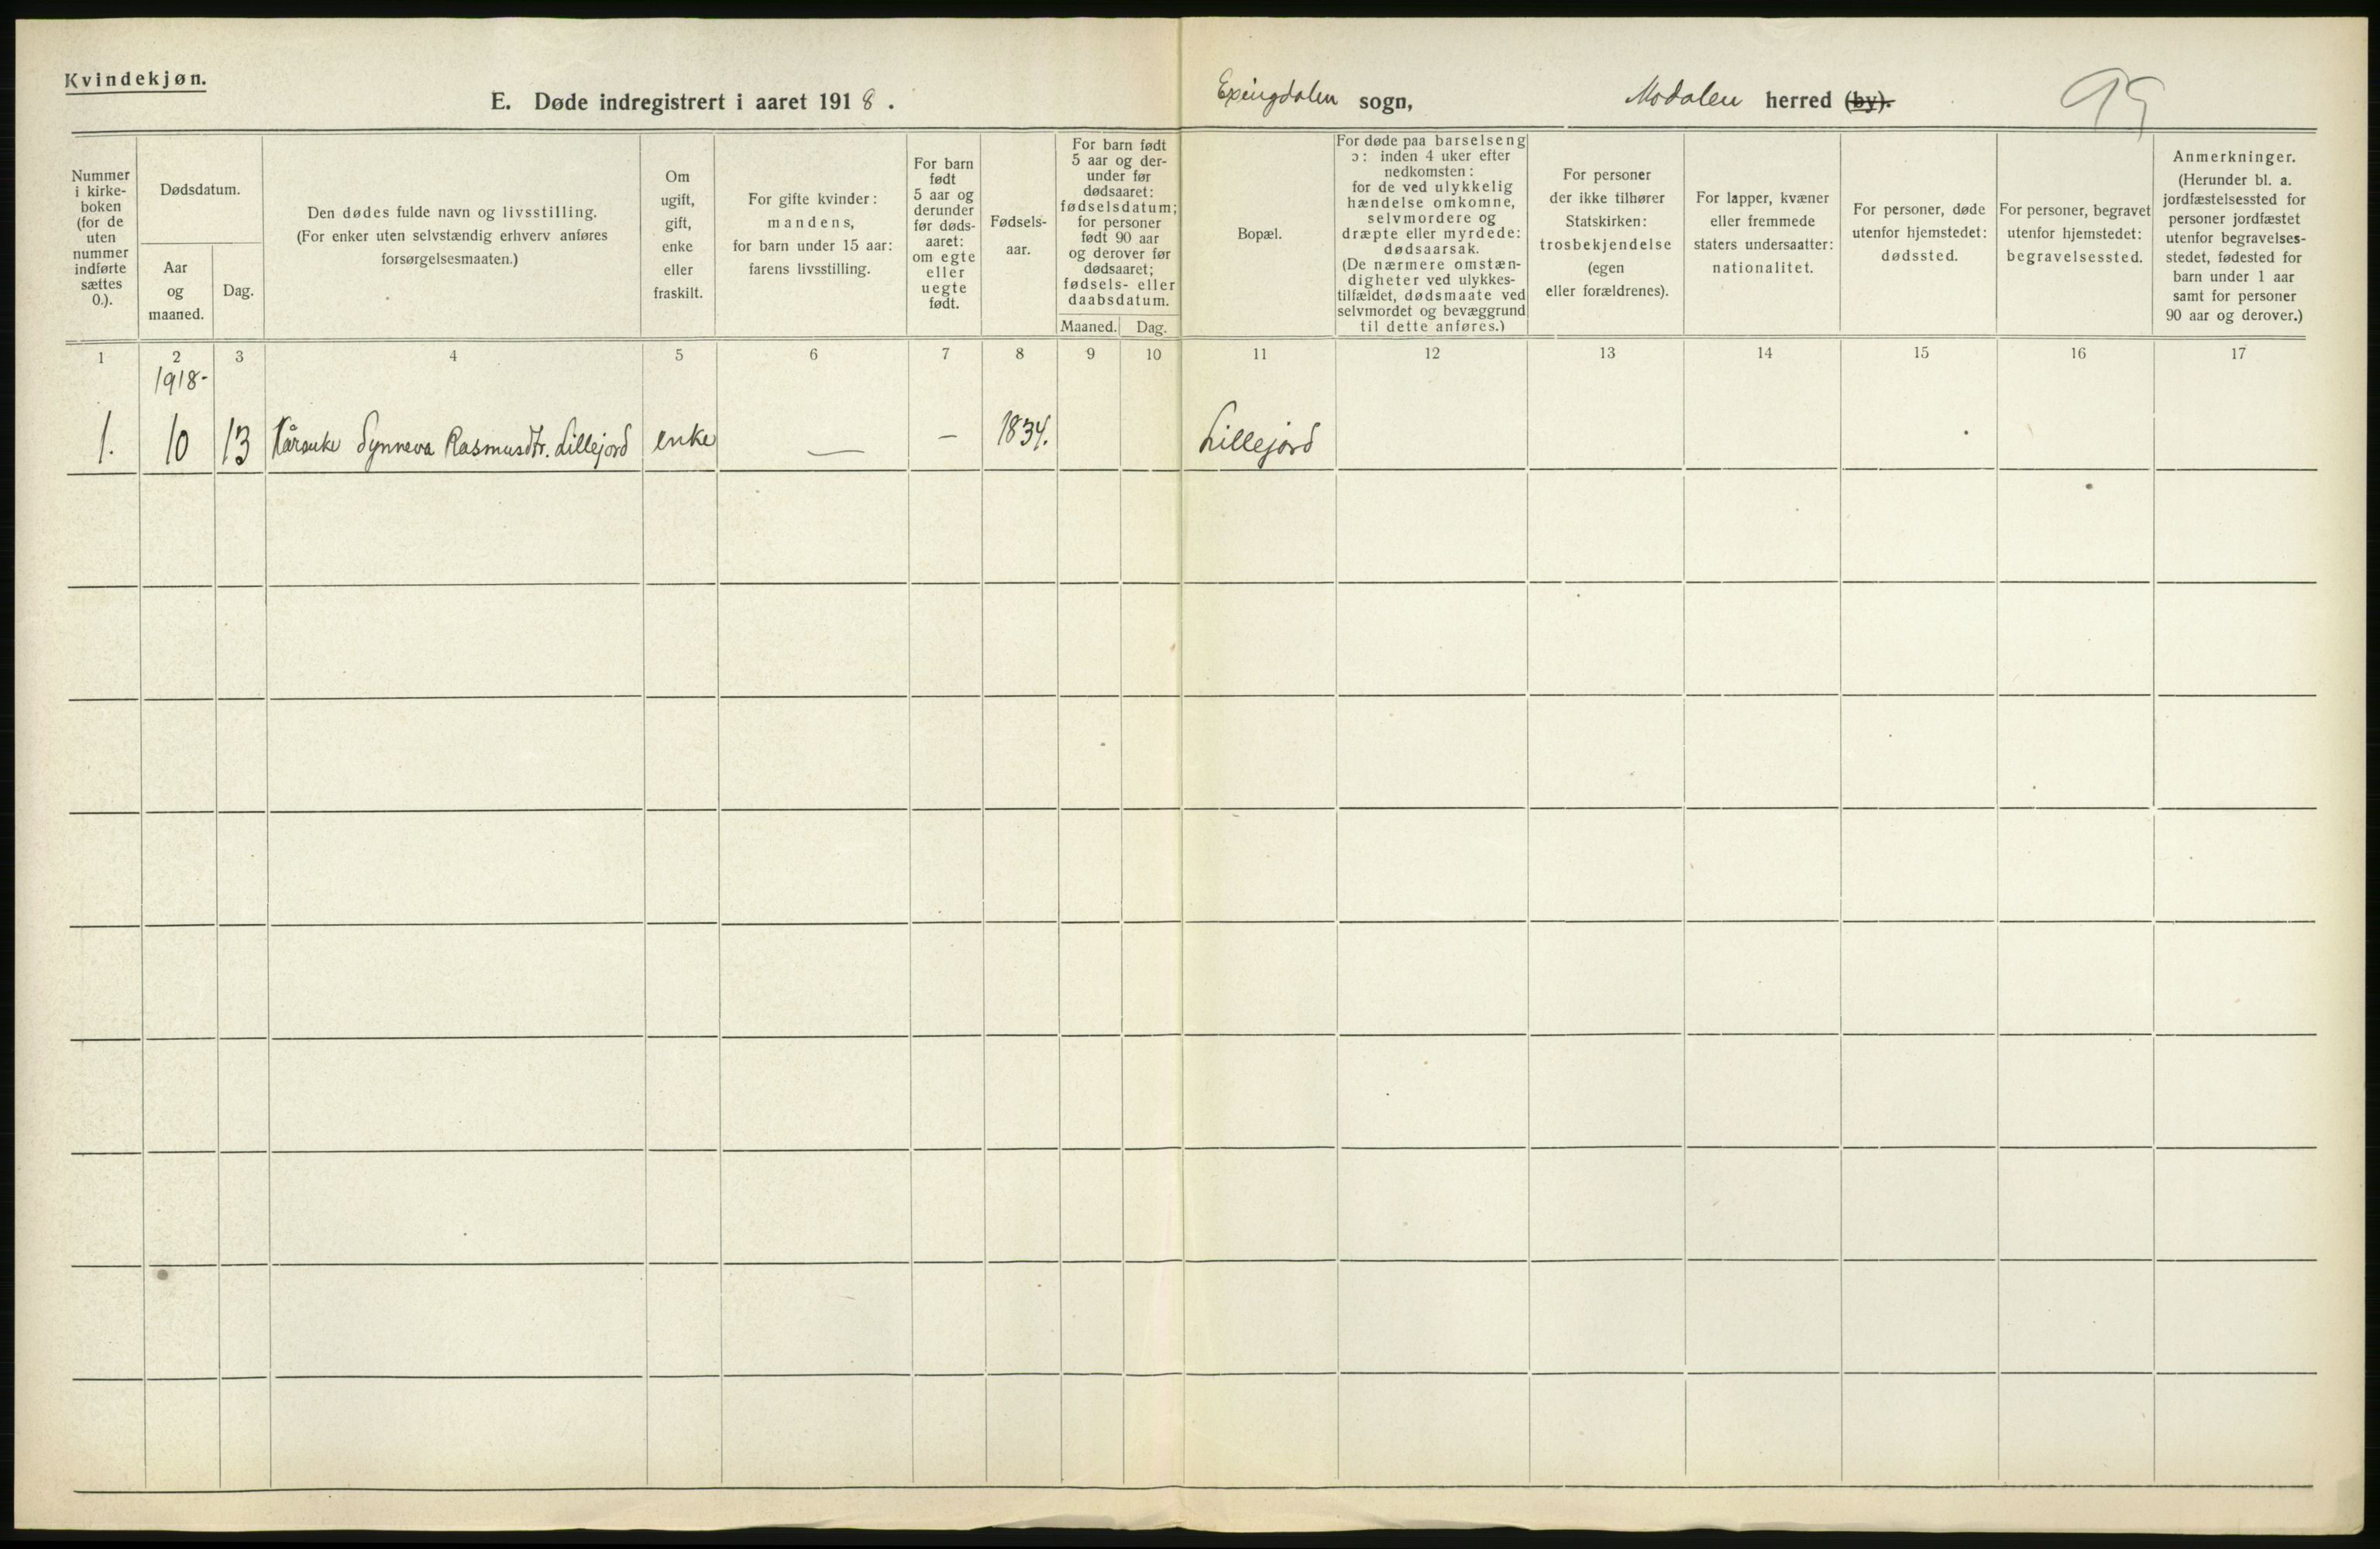 Kvindekjøn.
E. Døde indregistrert i aaret 1918.
Exingdalen sogn, Modalen herred (by).
99
Nummer
i kirke-
boken
(for de
uten
nummer
indførte
sættes
0.).
Dødsdatum.
Aar
og
maaned.
Dag.
Den dødes fulde navn og livsstilling.
(For enker uten selvstændig erhverv anføres
forsørgelsesmaaten.)
Om
ugift,
gift,
enke
eller
fraskilt.
For gifte kvinder:
mandens,
for barn under 15 aar:
farens livsstilling.
For barn
født
5 aar og
derunder
før døds-
aaret:
om egte
eller
uegte
født.
Fødsels-
aar.
For barn født
5 aar og der-
under før
dødsaaret:
fødselsdatum;
for personer
født 90 aar
og derover før
dødsaaret;
fødsels- eller
daabsdatum.
Maaned. Dag.
Bopæl.
For døde paa barselseng
ɔ: inden 4 uker efter
nedkomsten:
for de ved ulykkelig
hændelse omkomne,
selvmordere og
dræpte eller myrdede:
dødsaarsak.
(De nærmere omstæn-
digheter ved ulykkes-
tilfældet, dødsmaate ved
selvmordet og bevæggrund
til dette anføres.)
For personer
der ikke tilhører
Statskirken:
trosbekjendelse
(egen
eller forældrenes).
For lapper, kvæner
eller fremmede
staters undersaatter:
nationalitet.
For personer, døde
utenfor hjemstedet:
dødssted.
For personer, begravet
utenfor hjemstedet:
begravelsessted.
Anmerkninger.
(Herunder bl. a.
jordfæstelsessted for
personer jordfæstet
utenfor begravelses-
stedet, fødested for
barn under 1 aar
samt for personer
90 aar og derover.)
1 2 3 4 5 6 7 8 9 10 11 12 13 14 15 16 17
1918-
1. 10 13 Kårenke Synneva Rasmusdtr. Lillejord enke — – 1834. Lillejord